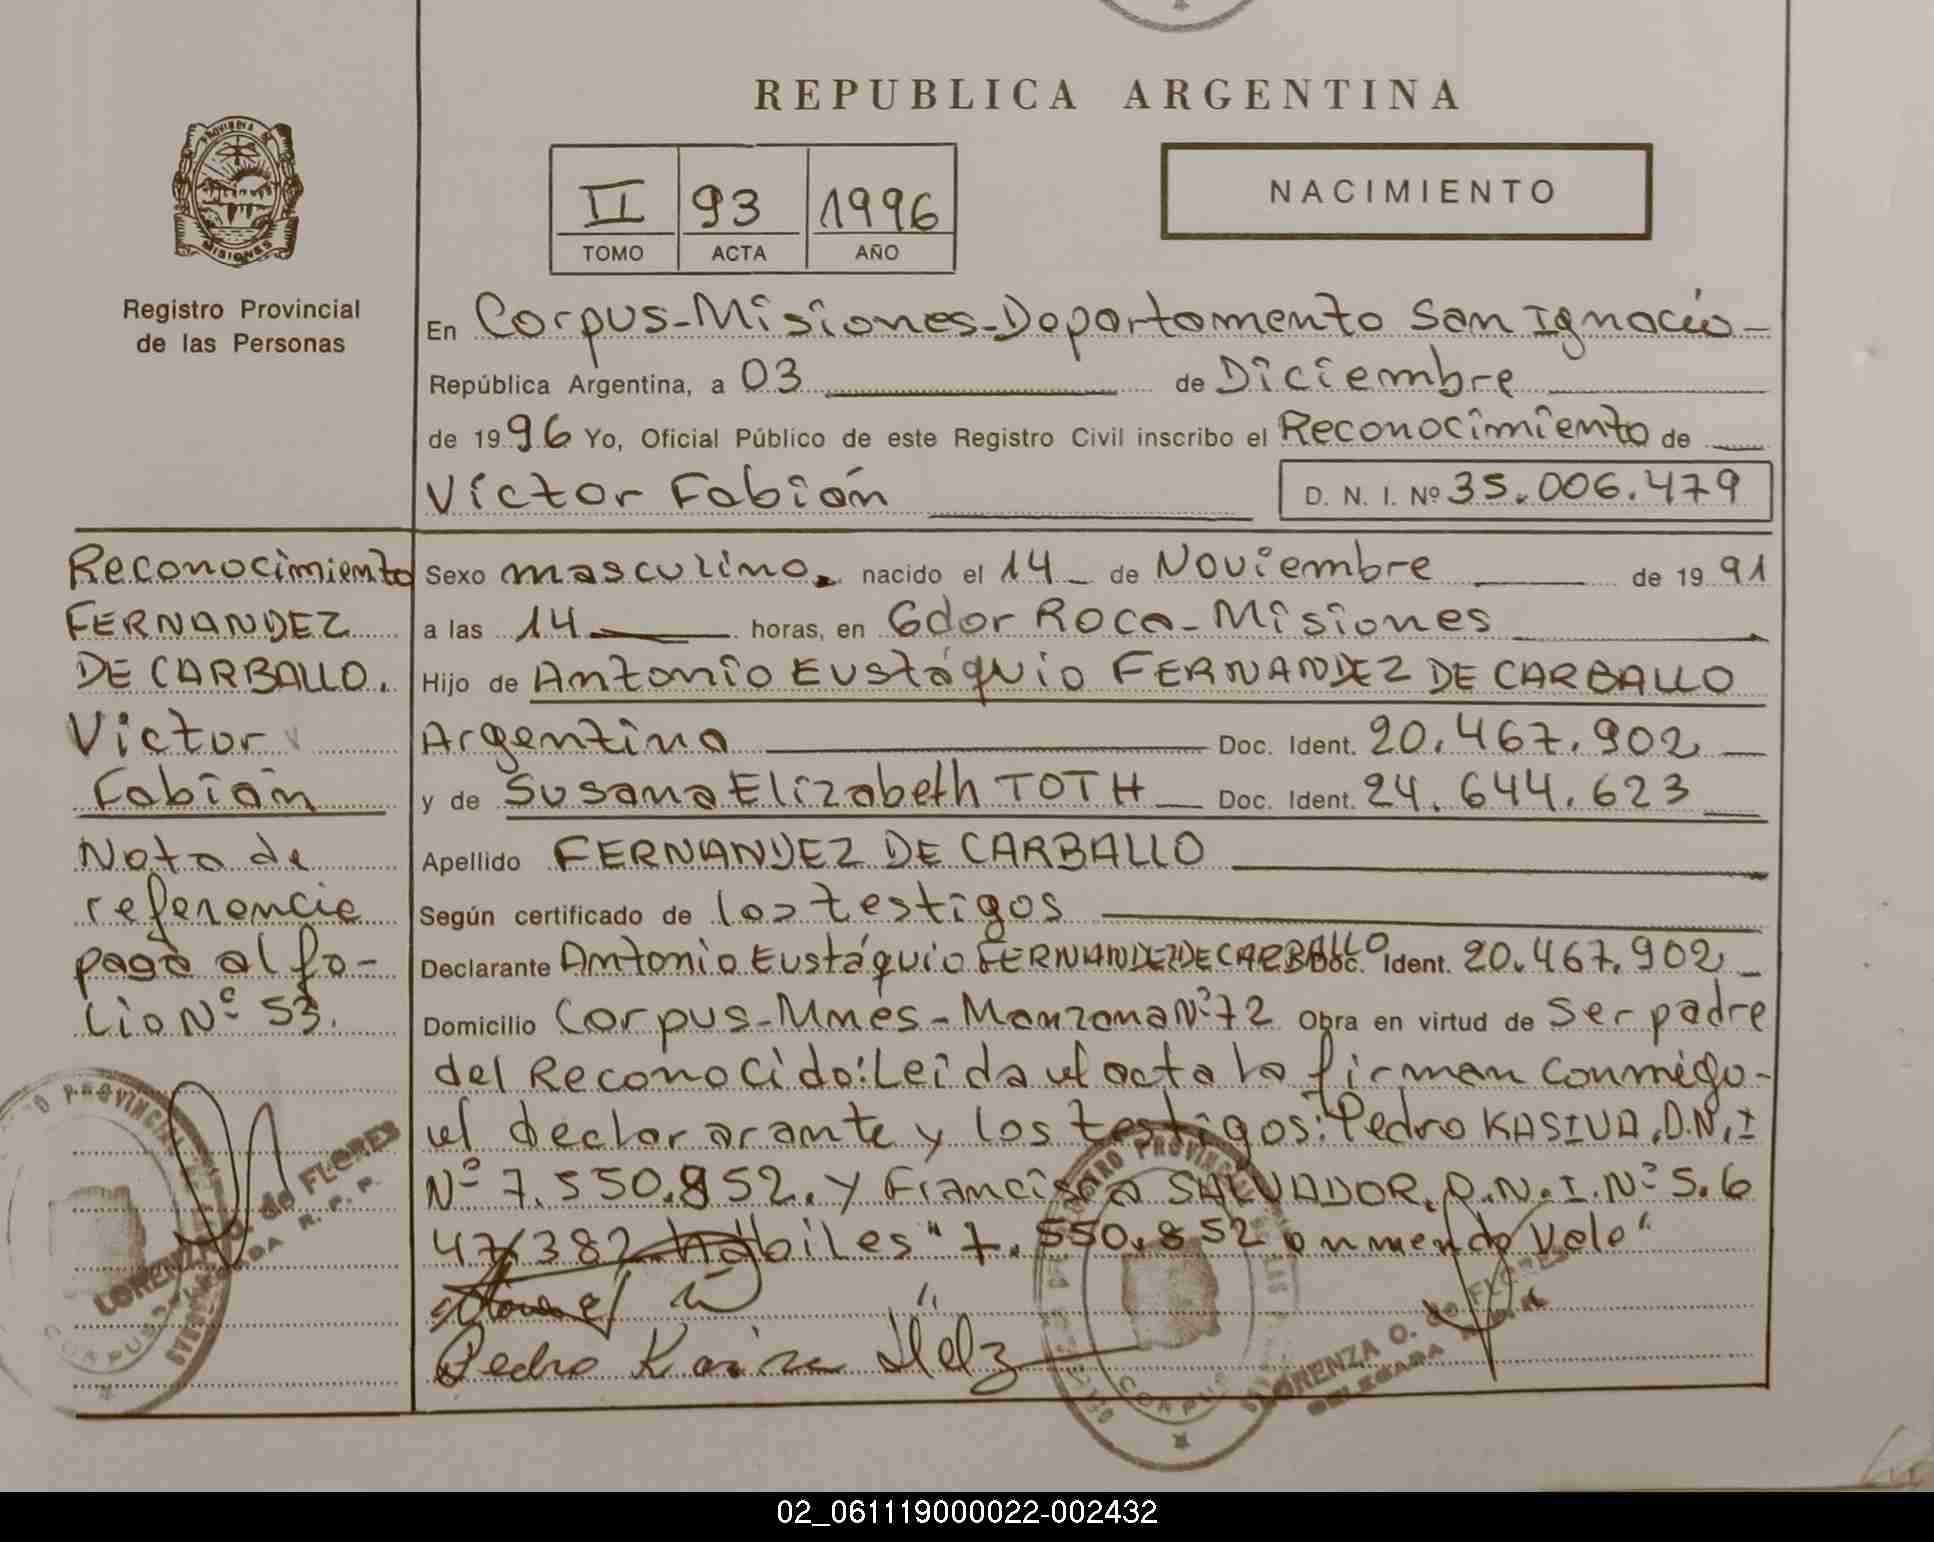 REPUBLICA ARGENTINA
PROVINCIA DE
MISIONES
Registro Provincial
de las Personas
II 93 1996
TOMO ACTA AÑO
NACIMIENTO
En Corpus-Misiones-Departamento San Ignacio-
República Argentina, a 03 de Diciembre
de 1996 Yo, Oficial Público de este Registro Civil inscribo el Reconocimiento de
Víctor Fabián D. N. I. Nº 35.006.479
Reconocimiento
FERNANDEZ
DE CARBALLO.
Victor
Fabián
Nota de
referencia
pasa al fo-
lio Nº 53.
Sexo masculino. nacido el 14 de Noviembre de 1991
a las 14 horas, en Gdor Roca-Misiones
Hijo de Antonio Eustáquio FERNANDEZ DE CARBALLO
Argentina Doc. Ident. 20.467.902
y de Susana Elizabeth TOTH Doc. Ident. 24.644.623
Apellido FERNANDEZ DE CARBALLO
Según certificado de los testigos
Declarante Antonio Eustáquio FERNANDEZ DE CARBALLO Doc. Ident. 20.467.902
Domicilio Corpus-Mnes-Manzana Nº 72 Obra en virtud de Ser padre
del Reconocido: Leida el acta la firman conmigo-
el declararante y los testigos: Pedro KASIUA, D.N.I
Nº 7.550.852. y Francisco SALVADOR. D.N.I. Nº 5.6
47.382 habiles "7.550.852 enmendo Vale"
Pedro
LORENZA O. de FLORES
DELEGADA R. P. P.
CORPUS
LORENZA O. de FLORES
DELEGADA
CORPUS
02_061119000022-002432